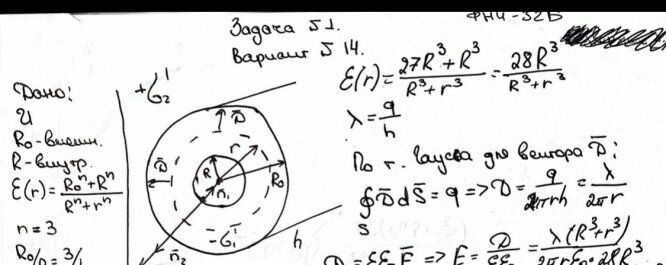 ФН4-32Б
Задача №1.
Вариант №14.
Дано:
U
R₀-внешн.
R-внутр.
ε(r)=(R₀ⁿ+Rⁿ)/(Rⁿ+rⁿ)
n=3
R₀/R=3/1
+σ₂'
D̄
r
D̄
R
R₀
n̄₁
-σ₁'
n̄₂
h
ε(r)=(27R³+R³)/(R³+r³)=28R³/(R³+r³)
λ=q/h
По т. Гаусса для вектора D̄:
∮D̄dS̄=q=>D=q/(2πrh)=λ/(2πr)
S
D̄=εε₀Ē=>E=D/(εε₀)=λ(R³+r³)/(2πrε₀·28R³)